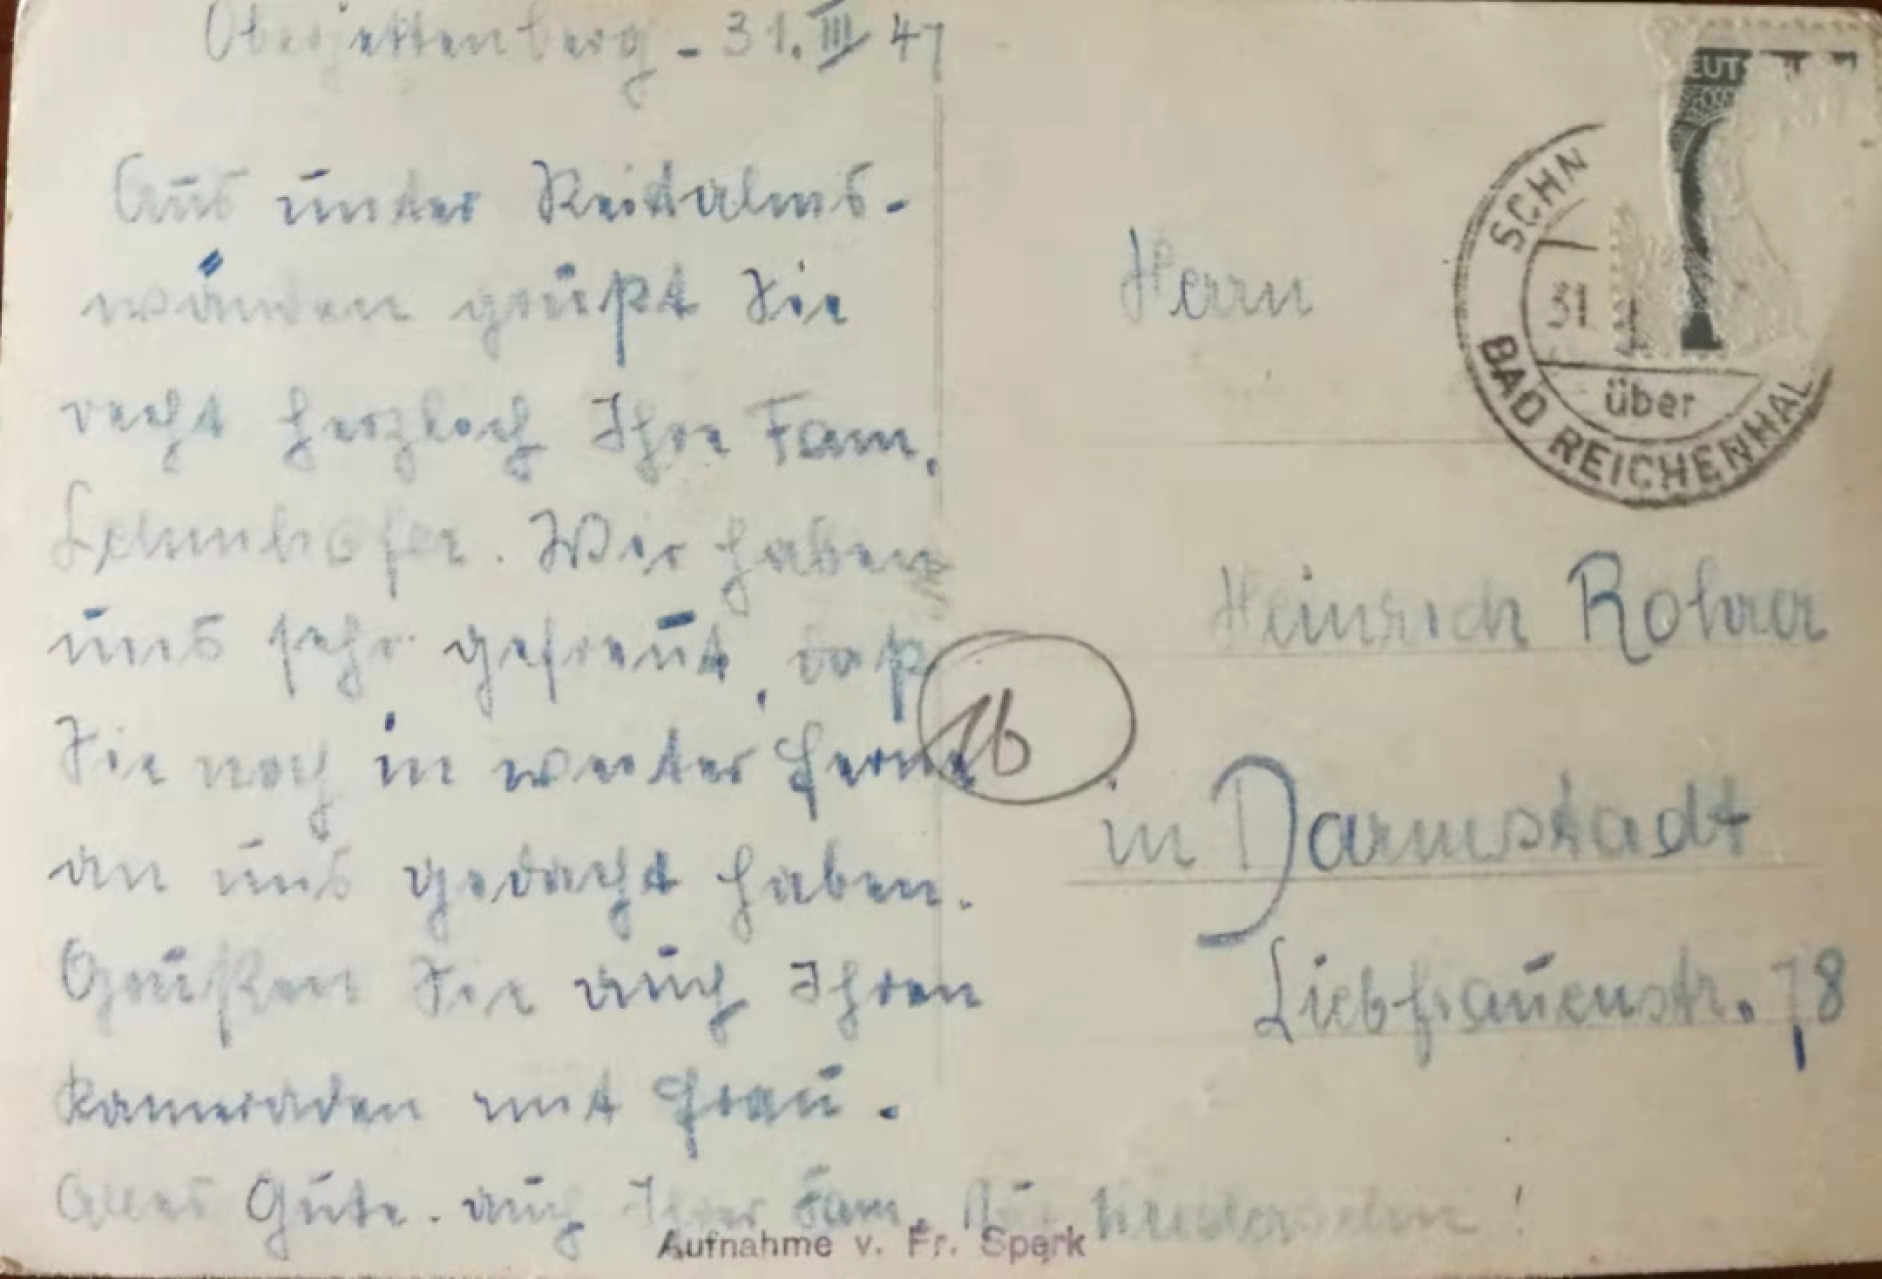 Oberjettenberg - 31. III 47
Aus unter Reitalms-
wänden grüßt Sie
recht herzlich Ihre Fam.
Wir haben
uns sehr gefreut, daß
Sie noch in weiter Ferne
an uns gedacht haben.
Grüßen Sie auch Ihren
Kameraden mit Frau.
Alles Gute. auch Ihrer Fam. Auf Wiedersehn!
Aufnahme v. Fr. Sperk
16
EUT
SCHN
31
über
BAD REICHENHAL
Herrn
Heinrich Rohrer
in Darmstadt
Liebfrauenstr. 78